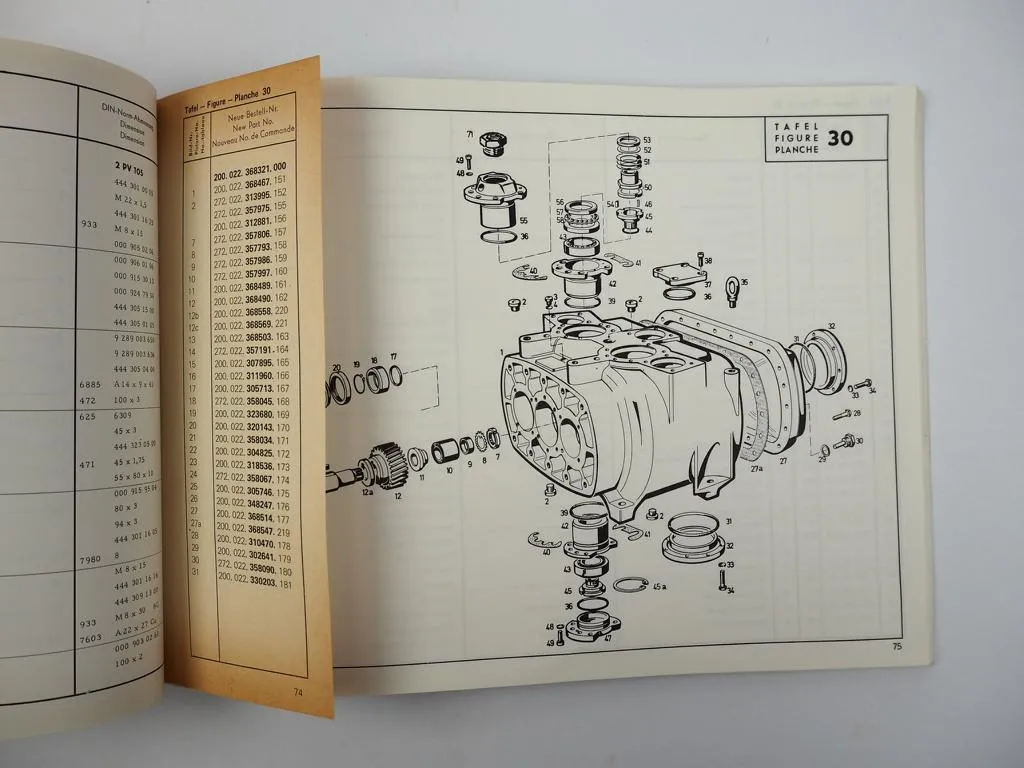 DIN-Norm-Abmessung
Dimension
Dimension
2 PV 105
M 22 x 1,5
444 301 16 25
933 M 8 x 15
000 905 02 04
000 906 01 06
000 915 30 12
000 924 79 50
444 305 15 00
444 305 01 05
9 289 003 650
9 289 003 636
444 305 04 00
6885 A 14 x 9 x 45
472 100 x 3
625 6309
45 x 3
444 323 05 00
471 45 x 1,75
55 x 80 x 10
000 915 95 04
80 x 3
94 x 3
444 301 16 05
7980 8
M 8 x 15
444 301 16 16
444 309 13 07
933 M 8 x 30 8G
7603 A 22 x 27 Cu
000 903 02 62
100 x 2
Tafel – Figure – Planche 30
Neue Bestell-Nr.
New Part No.
Nouveau No. de Commande
200. 022. 368321. 000
1 200. 022. 368467. 151
2 272. 022. 313995. 152
200. 022. 357975. 155
200. 022. 312881. 156
7 272. 022. 357806. 157
8 272. 022. 357793. 158
9 272. 022. 357986. 159
10 272. 022. 357997. 160
11 200. 022. 368489. 161
12 200. 022. 368490. 162
12b 200. 022. 368558. 220
12c 200. 022. 368569. 221
13 200. 022. 368503. 163
14 272. 022. 357191. 164
15 200. 022. 307895. 165
16 200. 022. 311960. 166
17 200. 022. 305713. 167
18 272. 022. 358045. 168
19 200. 022. 323680. 169
20 200. 022. 320143. 170
21 272. 022. 358034. 171
22 200. 022. 304825. 172
23 200. 022. 318536. 173
24 272. 022. 358067. 174
25 200. 022. 305746. 175
26 200. 022. 348247. 176
27 200. 022. 368514. 177
27a 200. 022. 368547. 219
28 200. 022. 310470. 178
29 200. 022. 302641. 179
30 272. 022. 358090. 180
31 200. 022. 330203. 181
74
TAFEL
FIGURE 30
PLANCHE
71
49
48
55
36
53
52
51
50
54
46
45
44
56
57
58
43
40
41
42
39
38
37
36
35
2
3
4
2
1
32
31
33
34
28
30
29
27
27a
20
19
18
17
12a
12
11
10
9
8
7
2
2
39
42
41
40
43
45
45a
36
48
49
47
31
32
33
34
75